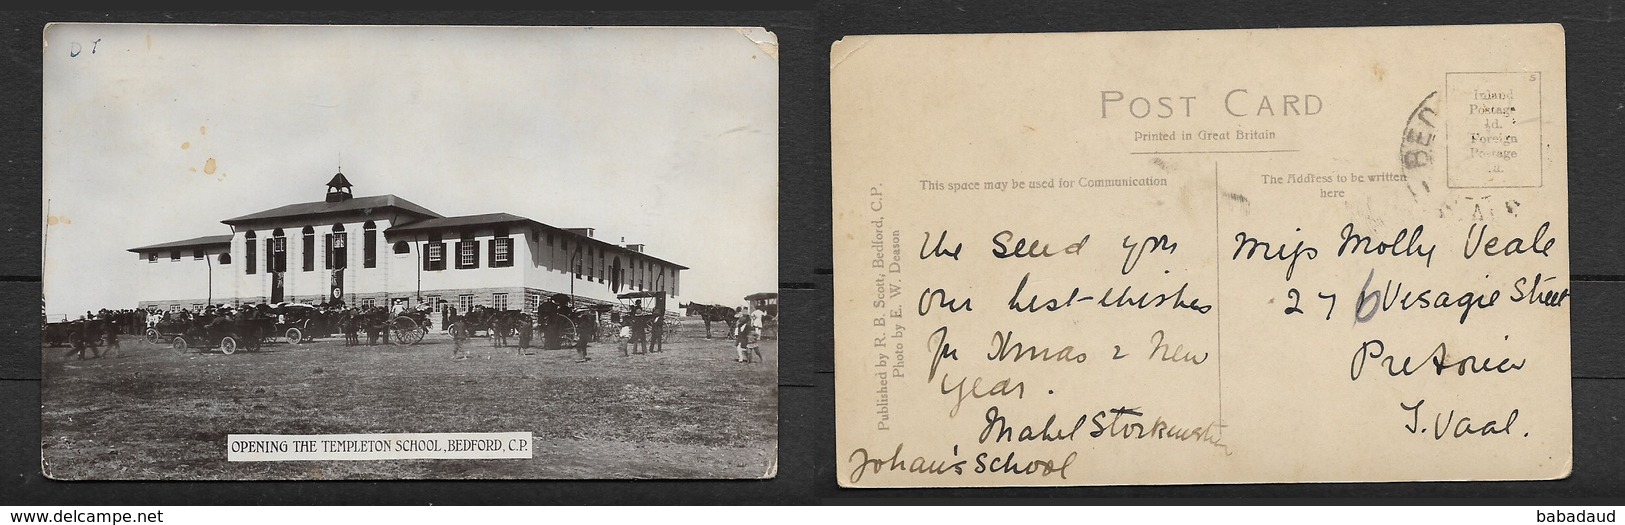 DT
OPENING THE TEMPLETON SCHOOL, BEDFORD, C.P.
POST CARD
Printed in Great Britain
This space may be used for Communication
The Address to be written
here
5
Inland
Postage
½d.
Foreign
Postage
1d.
BED
Published by R. B. Scott, Bedford, C.P.
Photo by E. W. Deason
We send you
our best-wishes
for Xmas & New
Year.
Mabel
Johan's School
Miss Molly Veale
276 Visagie Street
Pretoria
T. Vaal.
www.delcampe.net
babadaud